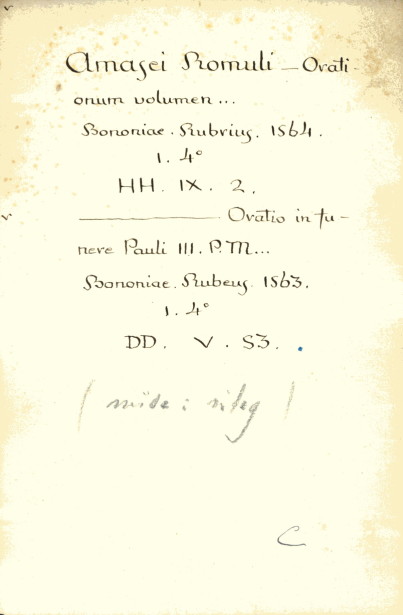 Amasei Romuli – Orati-
onum volumen...
Bononiae. Rubrius. 1564.
1. 4°
HH. IX. 2.
——— Oratio in fu-
nere Pauli III. P.M...
Bononiae. Rubeus. 1563.
1. 4°
DD. V. 53.
C